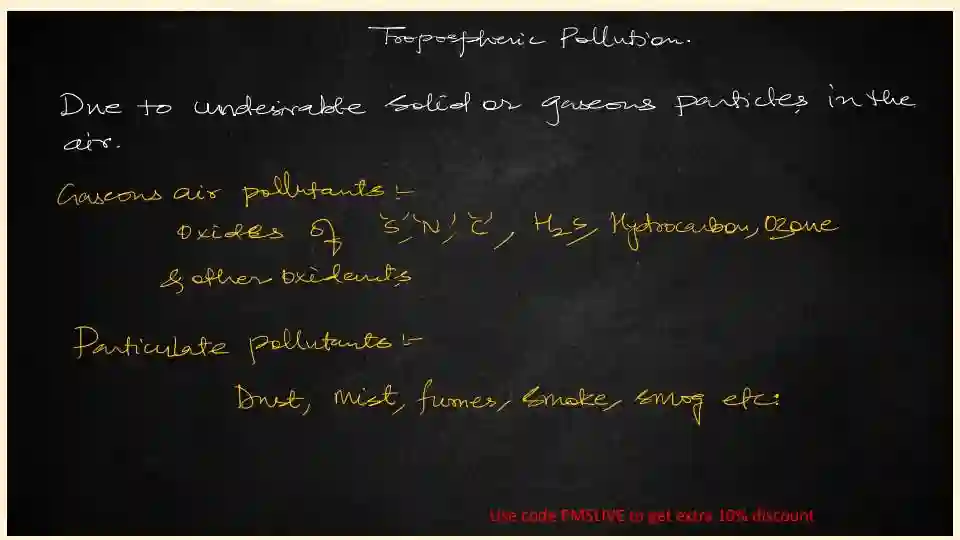 Tropospheric Pollution.
Due to undesirable solid or gaseous particles in the
air.
Gaseous air pollutants :-
oxides of 'S', 'N', 'C', H₂S, Hydrocarbon, Ozone
& other oxidants
Particulate pollutants :-
Dust, mist, fumes, smoke, smog etc.
Use code PMSLIVE to get extra 10% discount